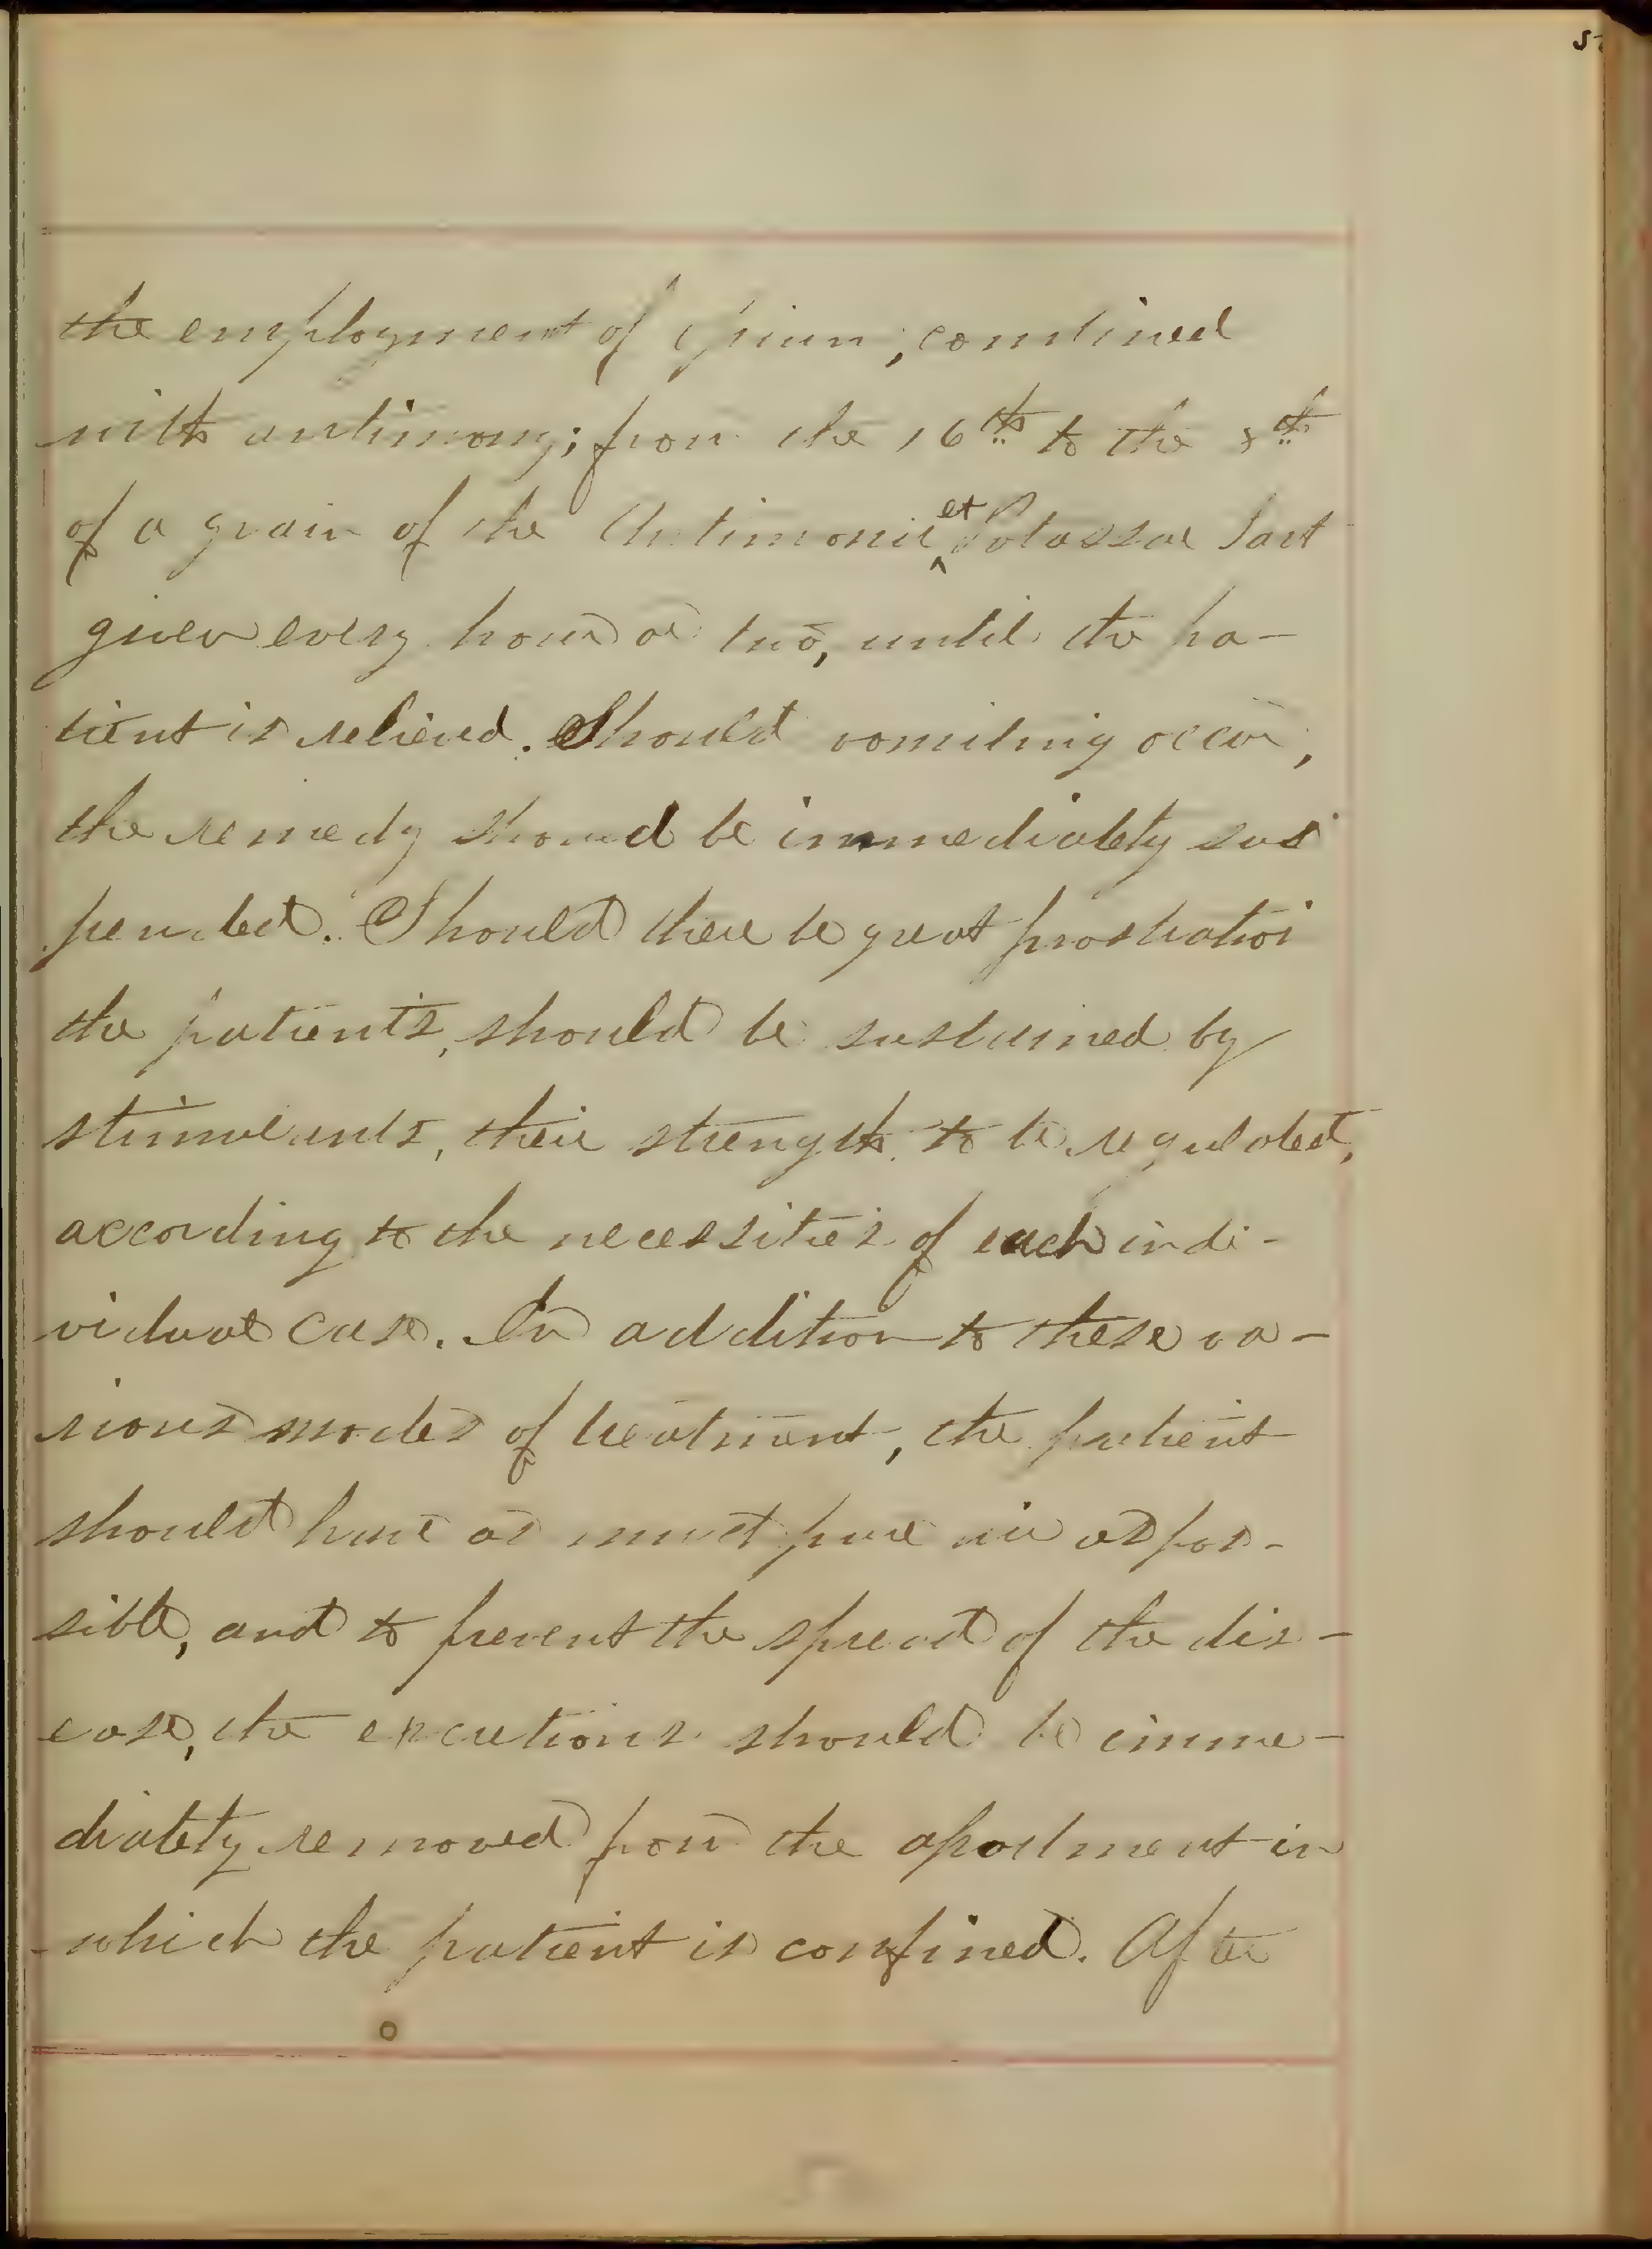 the employment of opium, combined
with antimony; from the 16th to the 8th
of a grain of the Antimonii et Potassae Tart
given every hour or two, until the pa-
tient is relieved. Should vomiting occur,
the remedy should be immediately sus
pended. Should there be great prostration
the patients, should be sustained by
stimulants, their strength to be regulated,
according to the necessities of each indi-
vidual case. In addition to these va-
rious modes of treatment, the patient
should have as much pure air as pos-
sible, and to prevent the spread of the dis-
ease, the excretions should be imme-
diately removed from the apartment in
which the patient is confined. After